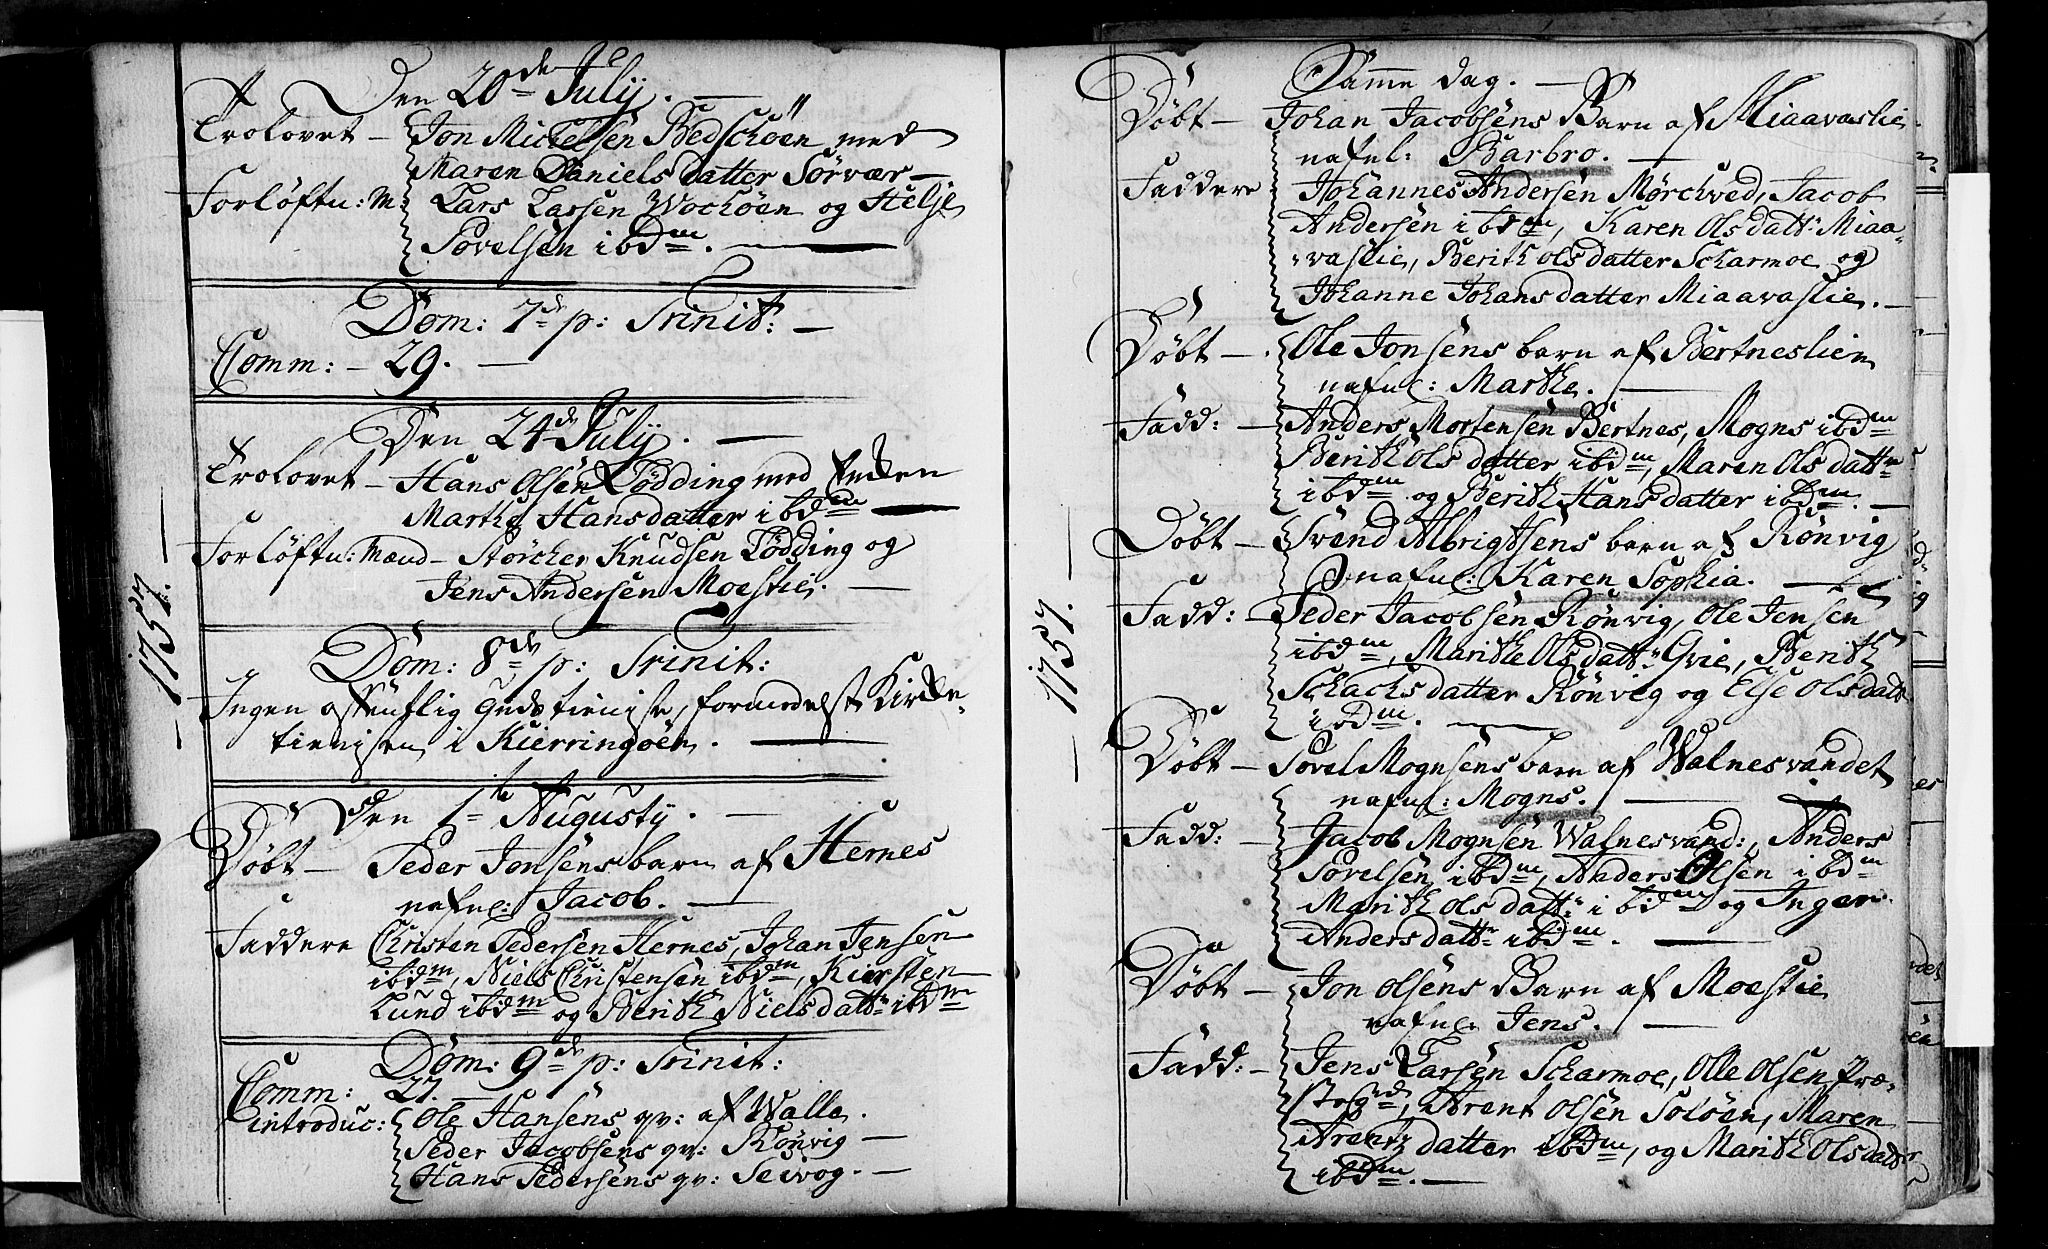 1757.
Den 20de Julij.
Trolovet - Jon Mickelsen Bedschöen med
Maren Daniels datter Sörvær -
Forlöftn: M: Lars Larsen Wochöen og Helje
Povelsen ibdm.
Dom: 7de p: Trinit:
Comm: - 29.
Den 24de Julij.
Trolovet - Hans Olsen Lödding med Encken
Marthe Hansdatter ibdm
Forlöftn: Mænd - Störcher Knudsen Lödding og
Jens Andersen Moeslie.
Dom: 8de p: Trinit:
Ingen offentlig Gudstieniste, formedelst Kircke-
tienisten i Kierringöen.
Den 1te Augusty.
Döbt - Peder Jonsens barn af Hernes
nafnl: Jacob.
Faddere Christen Pedersen Hernes, Johan Jensen
ibidm, Niels Christensen ibdm, Kiersten
Lund ibdm og Berith Nielsdattr ibdm
Dom: 9de p: Trinit:
Comm: 27.
introduc: Ole Hansens qv: af Walle.
Peder Jacobsens qv: Rönvig -
Hans Pedersens qv: Seivog. -
1757.
Samme dag.
Döbt - Johan Jacobsens Barn af Miaavaslie
nafnl: Barbro.
Faddere Johannes Andersen Mörchved, Jacob
Andersen ibdm, Karen Olsdatt: Miaa-
vaslie, Berith Olsdatter Scharmoe og
Johanne Johansdatter Miaavaslie.
Döbt - Ole Jonsens barn af Bertneslien
nafnl: Marthe.
Fadd: - Anders Mortensen Bertnes, Mogns ibdm
Berith Olsdatter ibdm, Maren Olsdattr
ibdm og Berith Hansdatter ibdm.
Döbt - Svend Albrigtsens barn af Rönvig
nafnl: Karen Sophia.
Fadd: - Peder Jacobsen Rönvig, Ole Jensen
ibdm, Marithe Olsdatt: Gvie, Berith
Schachsdatter Rönvig og Else Olsdatt
ibdm.
Döbt - Povel Mognsens barn af Walnesvandet
nafnl: Mogns.
Fadd: - Jacob Mognsen Walnesvand:, Anders
Povelsen ibdm, Anders Olsen ibdm
Marith Olsdatt: ibdm og Inger
Andersdattr ibdm.
Döbt - Jon Olsens Barn af Moeslie
nafnl: Jens.
Fadd: - Jens Larsen Scharmoe, Olle Olsen Præ-
steGrd, Arent Olsen Solöen, Maren
Arentzdatter ibdm, og Marith Olsdattr
ibdm.